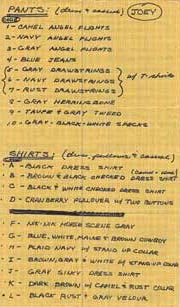 PANTS: (dress & casual) JOEY
1 - CAMEL ANGEL FLIGHTS
2 - NAVY ANGEL FLIGHTS
3 - GRAY ANGEL FLIGHTS
4 - BLUE JEANS
5 - GRAY DRAWSTRINGS
6 - NAVY DRAWSTRINGS W/ T-shirts
7 - RUST DRAWSTRINGS
8 - GRAY HERRINGBONE
9 - TAUPE & GRAY TWEED
10 - GRAY - BLACK - WHITE SPECKS
SHIRTS: (dress, pullovers & casual)
A - BLACK DRESS SHIRT
B - BROWN & BLACK CHECKED DRESS SHIRT
C - BLACK & WHITE CHECKED DRESS SHIRT
D - CRANBERRY PULLOVER W/ TWO BUTTONS
F - SCENE GRAY
G - BLUE, WHITE, & BROWN COWBOY
H - PLAID NAVY W/ STAND UP COLLAR
I - BROWN, GRAY & WHITE W/ STAND UP COLLAR
J - GRAY SILKY DRESS SHIRT
K - DARK BROWN W/ CAMEL & RUST COLLAR
L - BLACK RUST & GRAY VELOUR